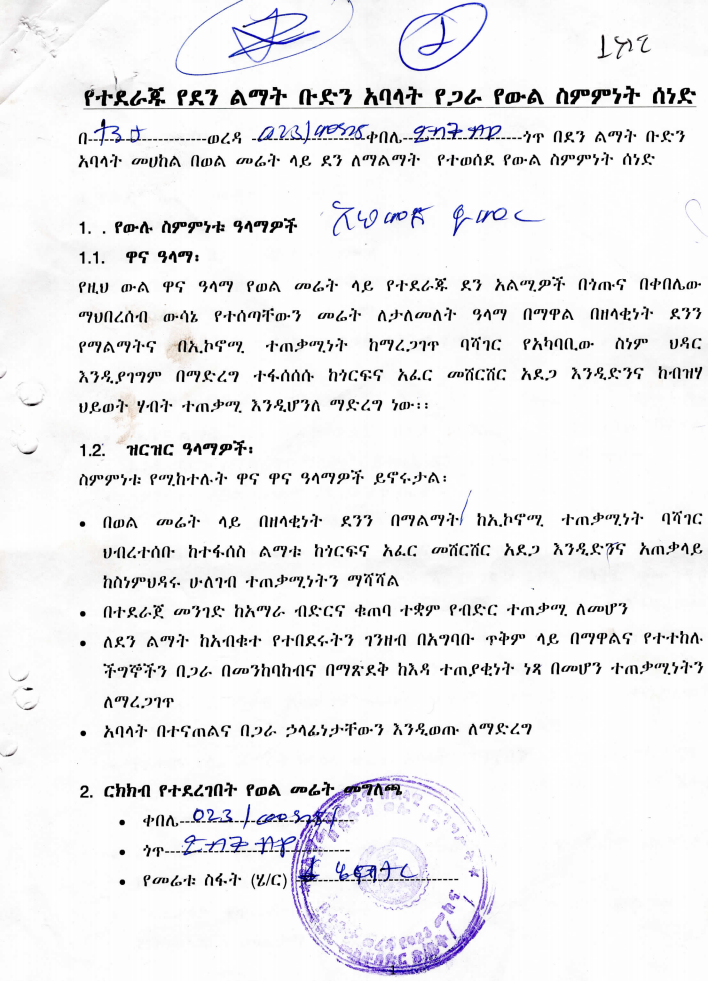 የተደራጁ የደን ልማት ቡድን አባላት የጋራ የውል ስምምነት ሰነድ
በ---------------ወረዳ ---023/---------ቀበሌ---------------ጎጥ በደን ልማት ቡድን
አባላት መሀከል በወል መሬት ላይ ደን ለማልማት የተወሰደ የውል ስምምነት ሰነድ
1. . የውሉ ስምምነቱ ዓላማዎች
1.1. ዋና ዓላማ፡
የዚህ ውል ዋና ዓላማ የወል መሬት ላይ የተደራጁ ደን አልሚዎች በጎጡና በቀበሌው
ማህበረሰብ ውሳኔ የተሰጣቸውን መሬት ለታለመለት ዓላማ በማዋል በዘላቂነት ደንን
የማልማትና በኢኮኖሚ ተጠቃሚነት ከማረጋገጥ ባሻገር የአካባቢው ስነም ህዳር
እንዲያገግም በማድረግ ተፋሰሰሱ ከጎርፍና አፈር መሸርሸር አደጋ እንዲድንና ከብዝሃ
ህይወት ሃብት ተጠቃሚ እንዲሆንለ ማድረግ ነው፡፡
1.2. ዝርዝር ዓላማዎች፡
ስምምነቱ የሚከተሉት ዋና ዋና ዓላማዎች ይኖሩታል፡
• በወል መሬት ላይ በዘላቂነት ደንን በማልማት ከኢኮኖሚ ተጠቃሚነት ባሻገር
ህብረተሰቡ ከተፋሰስ ልማቱ ከጎርፍና አፈር መሸርሸር አደጋ እንዲድንና አጠቃላይ
ከስነምህዳሩ ሁለገብ ተጠቃሚነትን ማሻሻል
• በተደራጀ መንገድ ከአማራ ብድርና ቁጠባ ተቋም የብድር ተጠቃሚ ለመሆን
• ለደን ልማት ከአብቁተ የተበደሩትን ገንዘብ በአግባቡ ጥቅም ላይ በማዋልና የተተከሉ
ችግኞችን በጋራ በመንከባከብና በማጽደቅ ከእዳ ተጠያቂነት ነጻ በመሆን ተጠቃሚነትን
ለማረጋገጥ
• አባላት በተናጠልና በጋራ ኃላፊነታቸውን እንዲወጡ ለማድረግ
2. ርክክብ የተደረገበት የወል መሬት መግለጫ
• ቀበሌ---023/---------
• ጎጥ---------------
• የመሬቱ ስፋት (ሄ/ር) ---------------
1